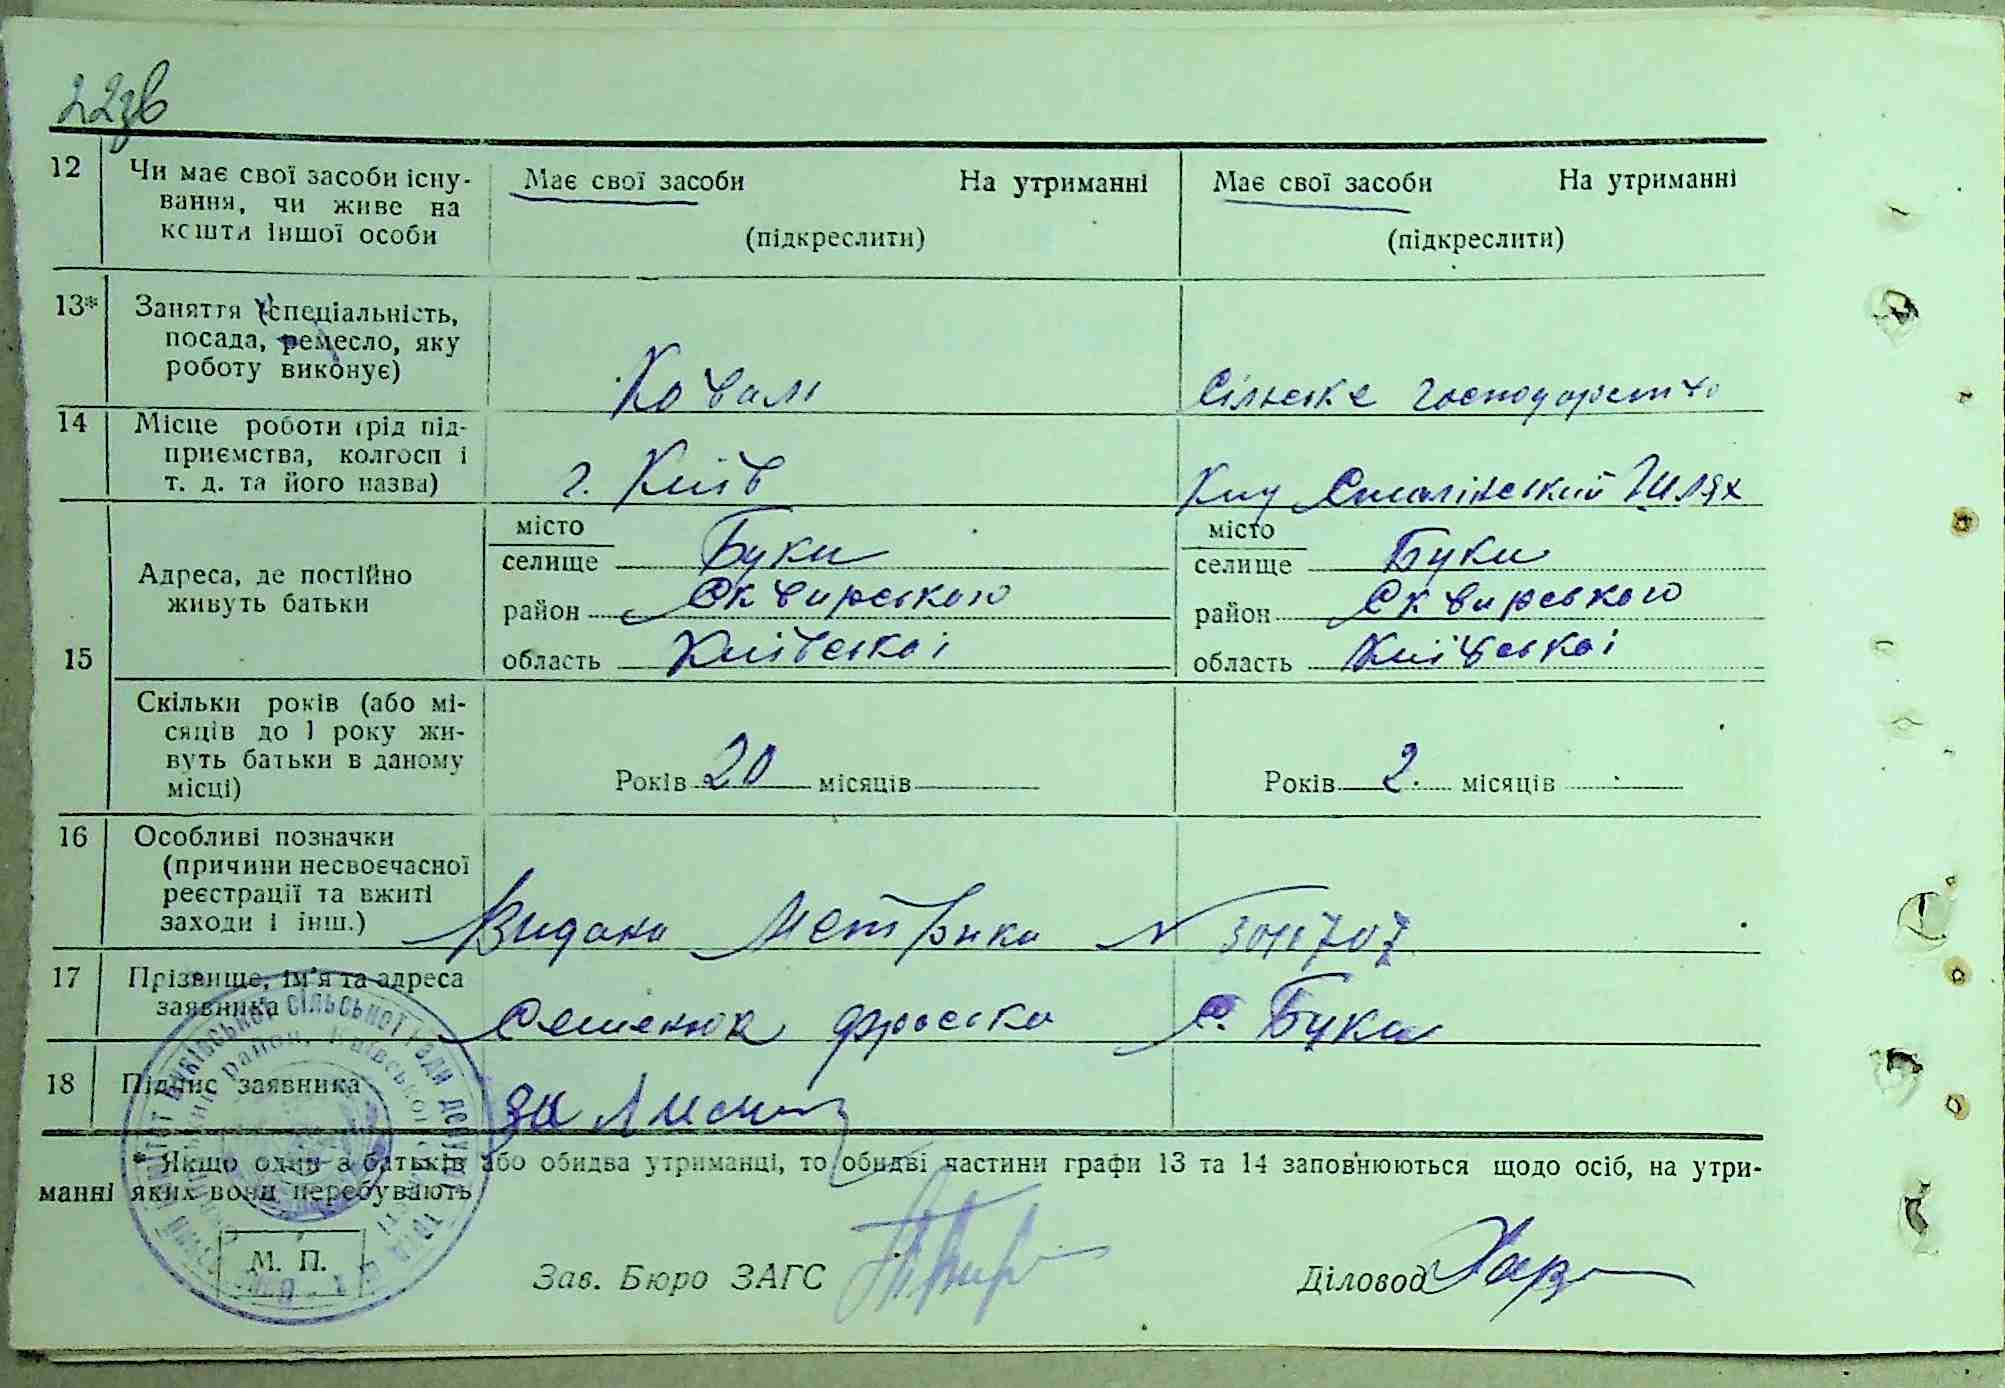 22зв
12 Чи має свої засоби існу-
вання, чи живе на
кошти іншої особи
Має свої засоби На утриманні
(підкреслити)
Має свої засоби На утриманні
(підкреслити)
13* Заняття (спеціальність,
посада, ремесло, яку
роботу виконує)
Коваль
Сільське господарство
14 Місце роботи (рід під-
приємства, колгосп і
т. д. та його назва)
г. Київ
Сталінський Шлях
15
Адреса, де постійно
живуть батьки
місто
селище Буки
район Сквирського
область Київської
місто
селище Буки
район Сквирського
область Київської
Скільки років (або мі-
сяців до 1 року жи-
вуть батьки в даному
місці)
Років 20 місяців
Років 2. місяців
16 Особливі позначки
(причини несвоєчасної
реєстрації та вжиті
заходи і інш.)
Видана Метрика №
17 Прізвище, ім'я та адреса
заявника
Семенюк Фроська с. Буки
18 Підпис заявника
за
* Якщо один з батьків або обидва утриманці, то обидві частини графи 13 та 14 заповнюються щодо осіб, на утри-
манні яких вони перебувають
М. П.
Зав. Бюро ЗАГС
Діловод